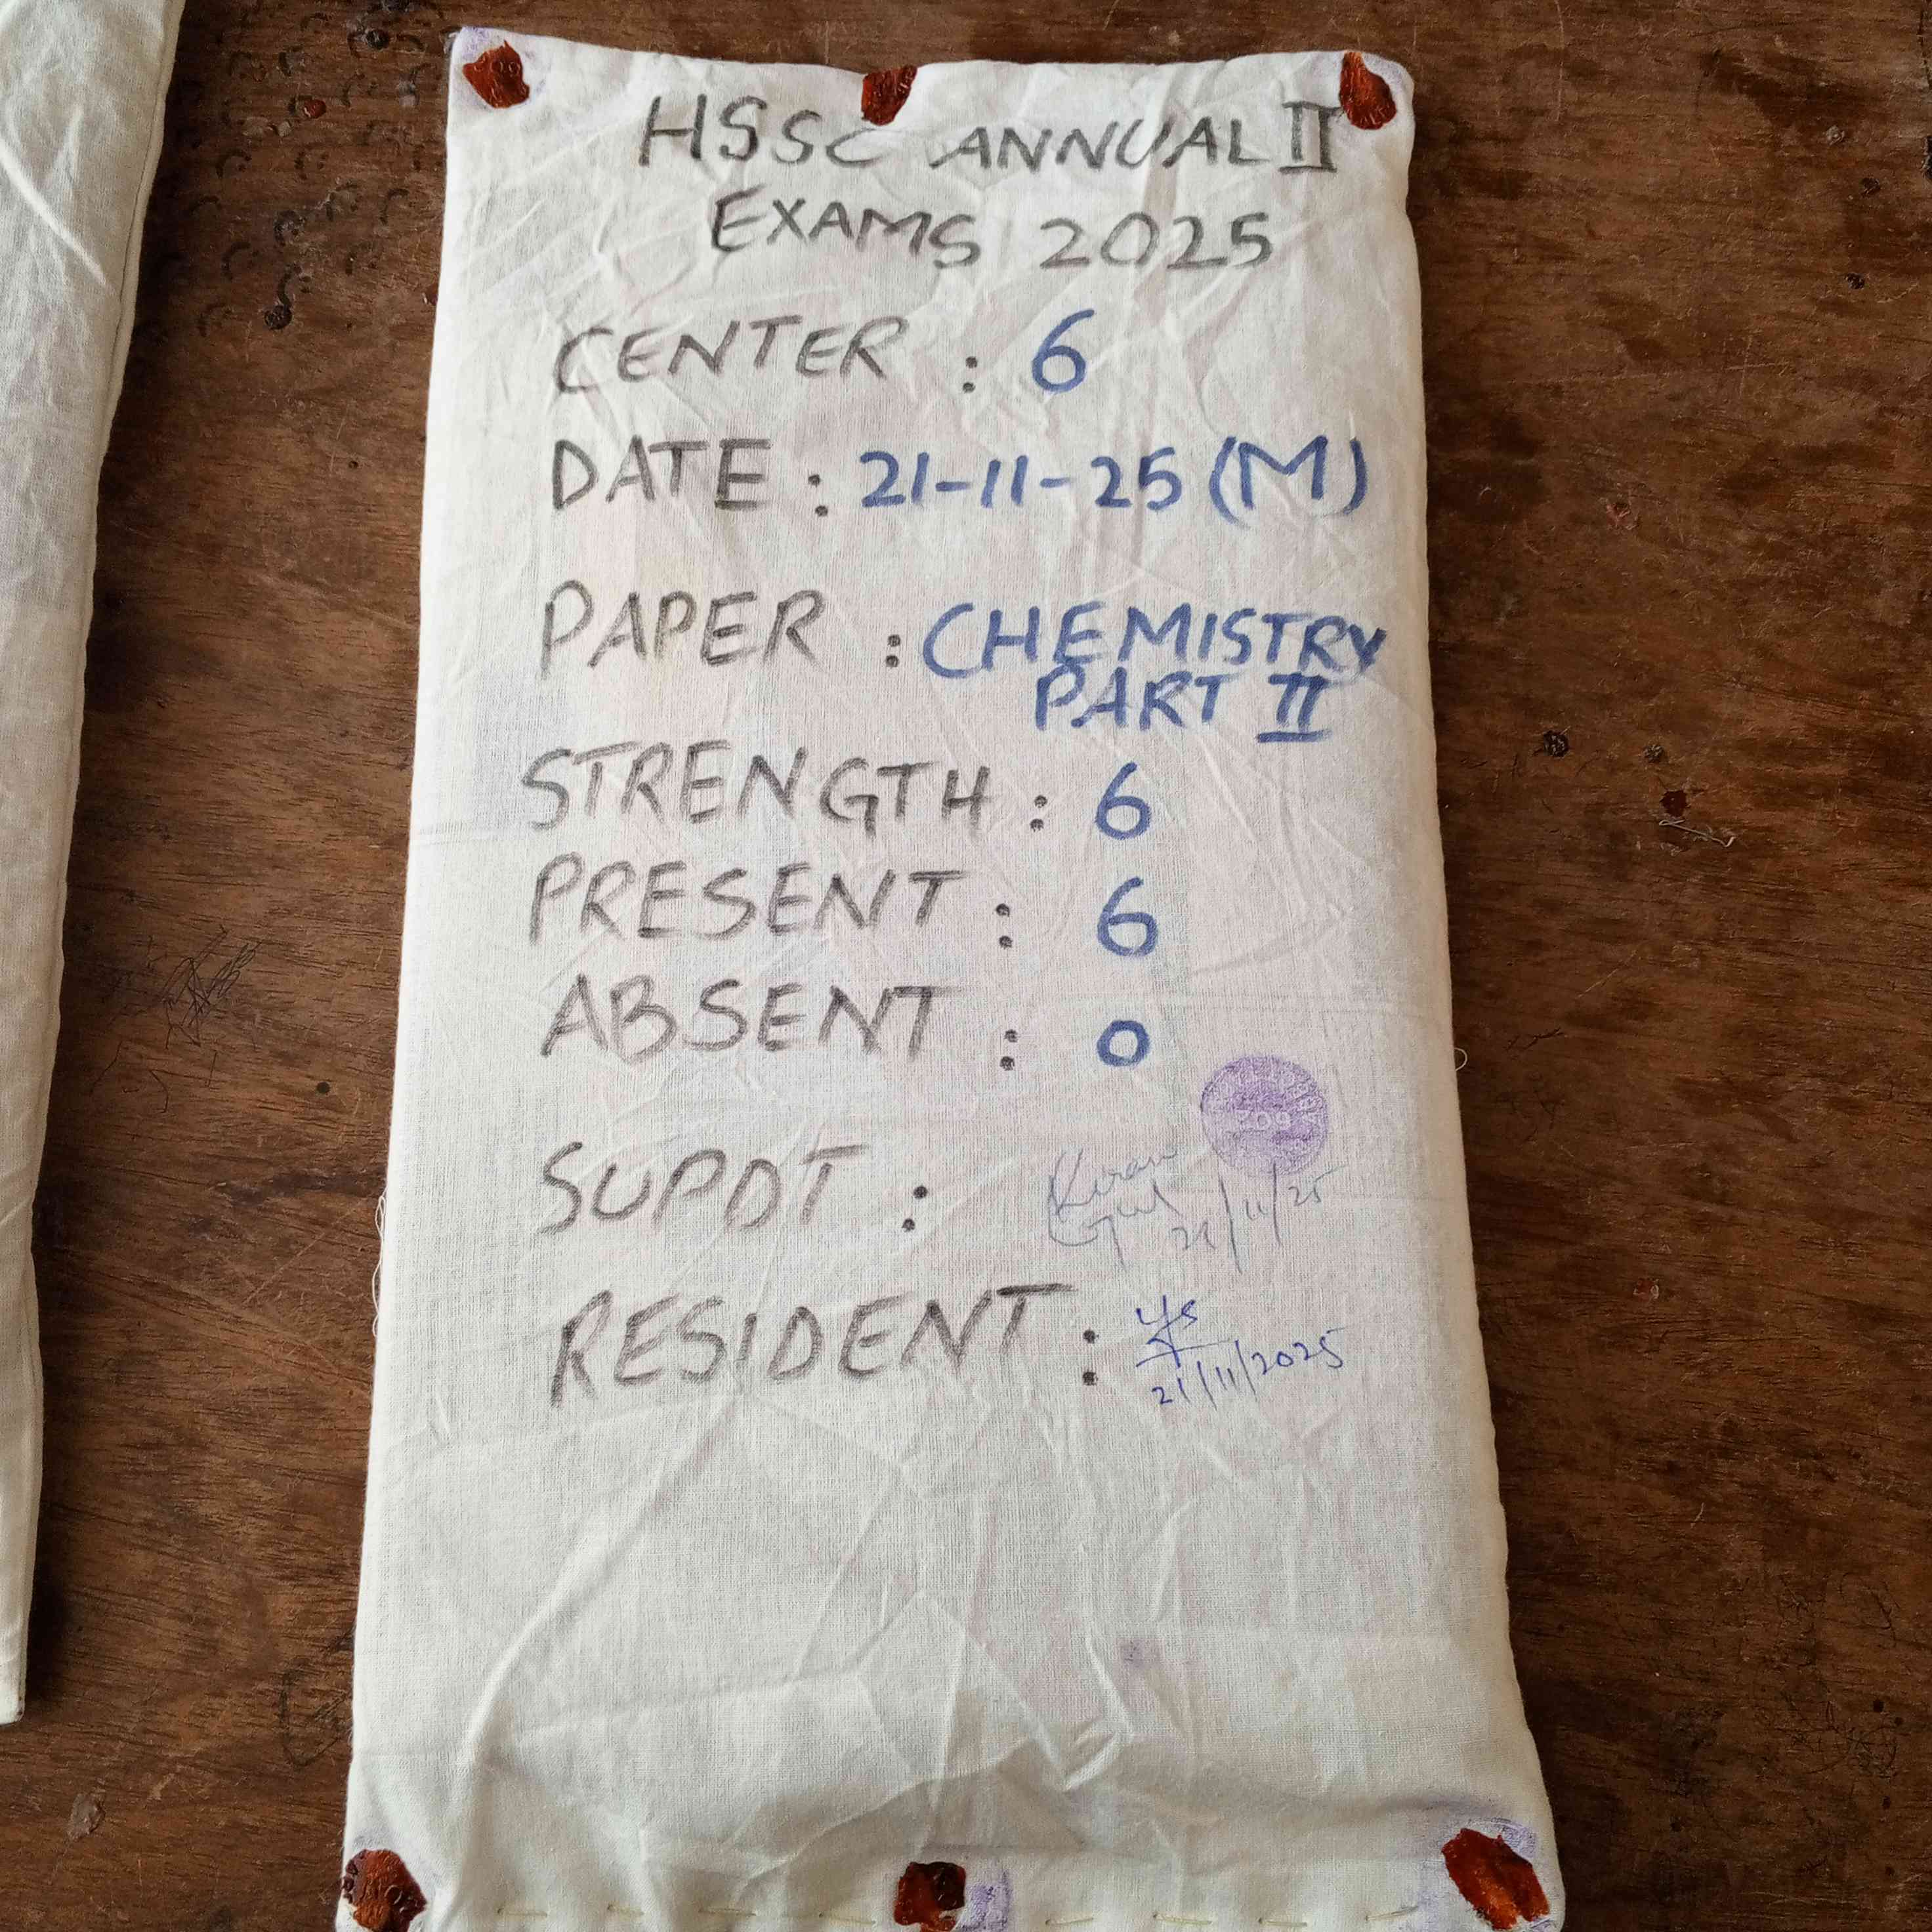 HSSC ANNUAL II
EXAMS 2025
CENTER : 6
DATE : 21-11-25 (M)
PAPER : CHEMISTRY
PART II
STRENGTH : 6
PRESENT : 6
ABSENT : 0
SUPDT : Kiran
Gul 21/11/25
RESIDENT :
21/11/2025